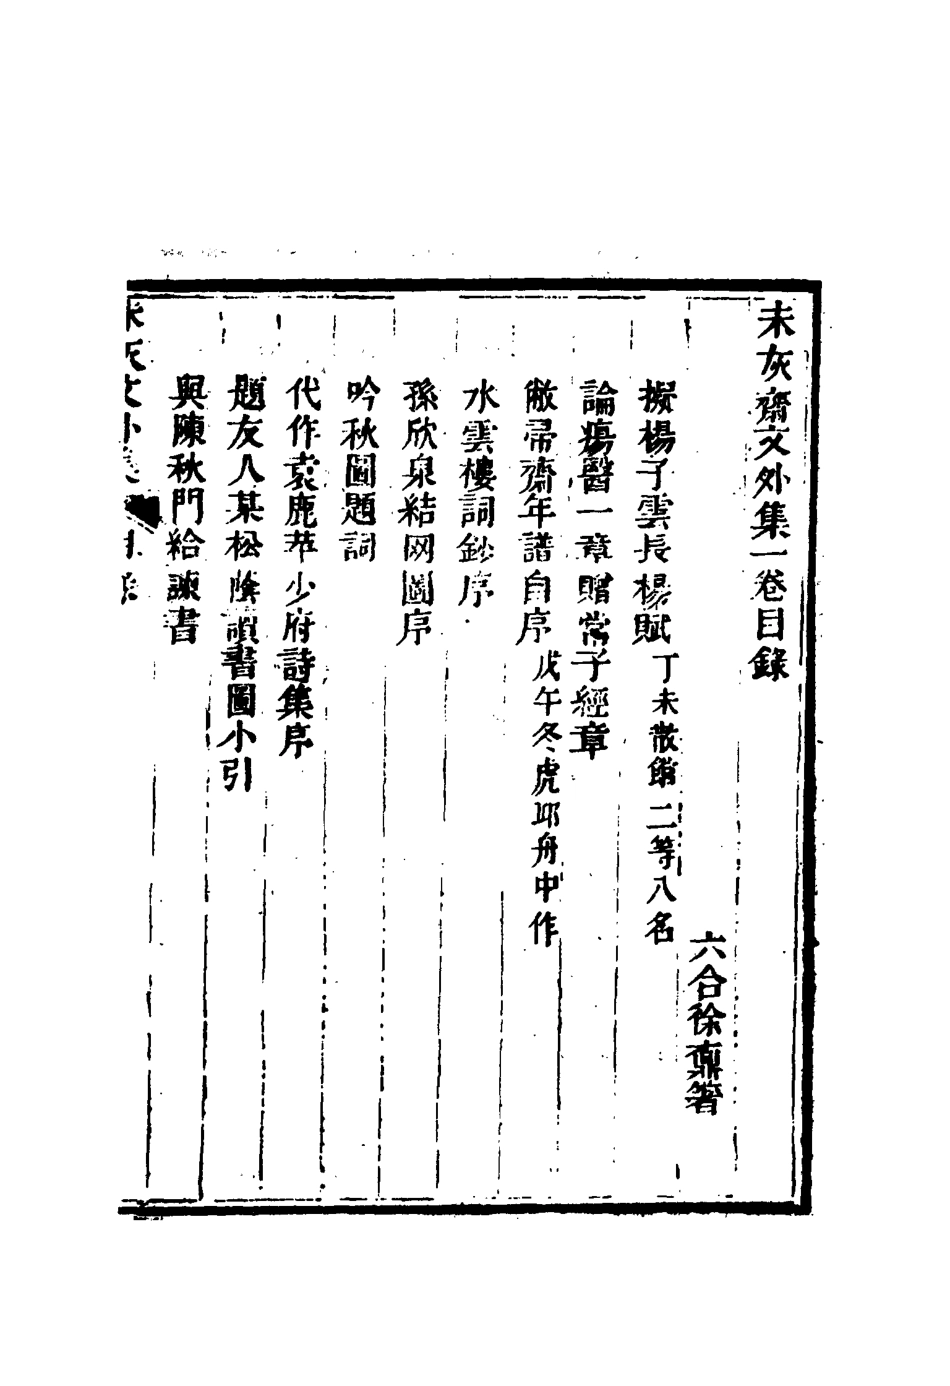 未灰齋文外集一卷目錄
六合徐鼒箸
擬楊子雲長楊賦丁未散館二等八名
論瘍醫一章贈常子經章
敝帚齋年譜自序戊午冬虎邱舟中作
水雲樓詞鈔序
孫欣泉結网圖序
吟秋圖題詞
代作袁鹿苹少府詩集序
題友人某松陰讀書圖小引
與陳秋門給諫書
未灰文外集 目錄